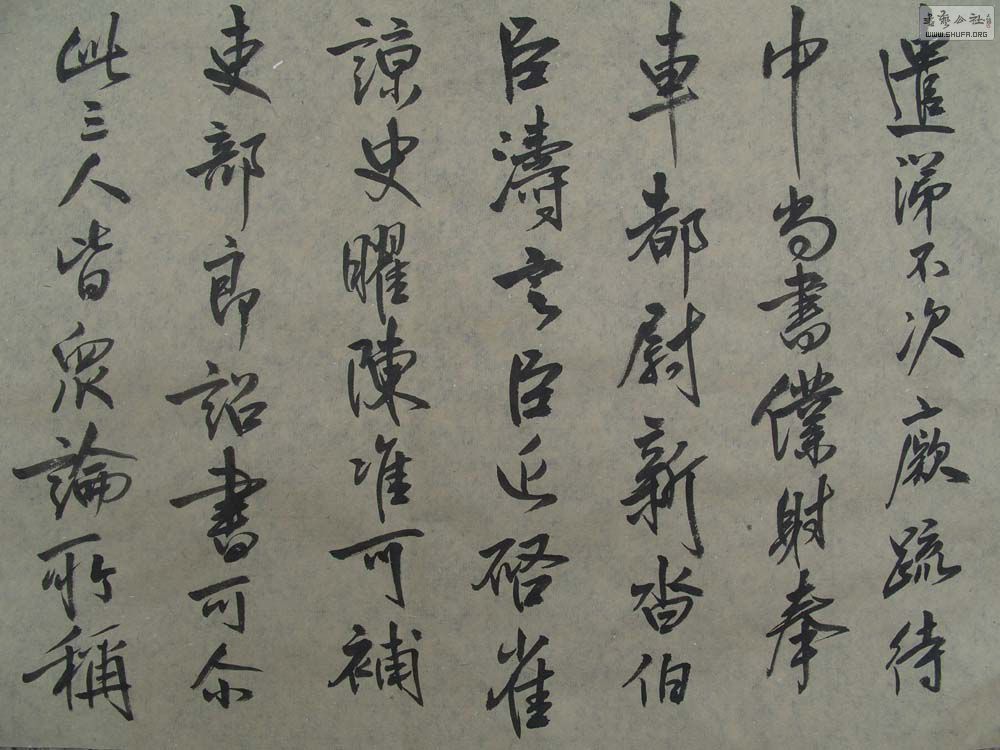 遣涕不次厥疏待
中尚書僕射奉
車都尉新沓伯
臣濤言臣近啓崔
諒史曜陳准可補
吏部郎詔書可尒
此三人皆眾論所稱
書藝公社
WWW.SHUFA.ORG